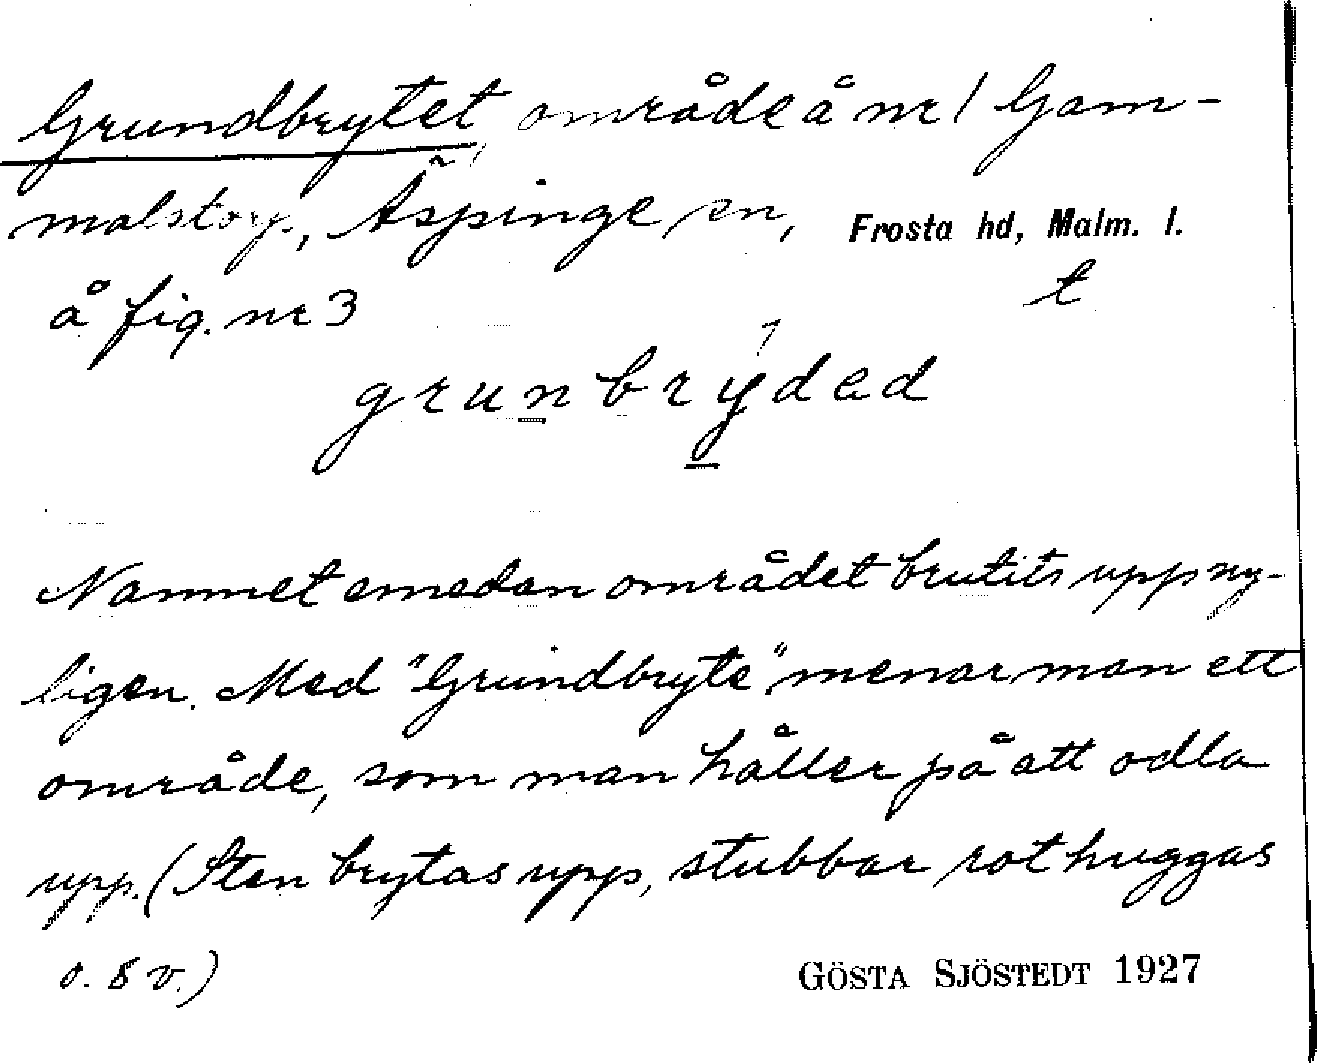 Grundbrytet, område å nr 1 Gam-
malstorp, Äspinge sn, Frosta hd, Malm. l.
å fig. nr 3 t
grunbrýded
Namnet emedan området brutits upp ny-
ligen. Med "Grundbryte" menar man ett
område, som man håller på att odla
upp. (Sten brytas upp, stubbar rothuggas
o. s v.) GÖSTA SJÖSTEDT 1927